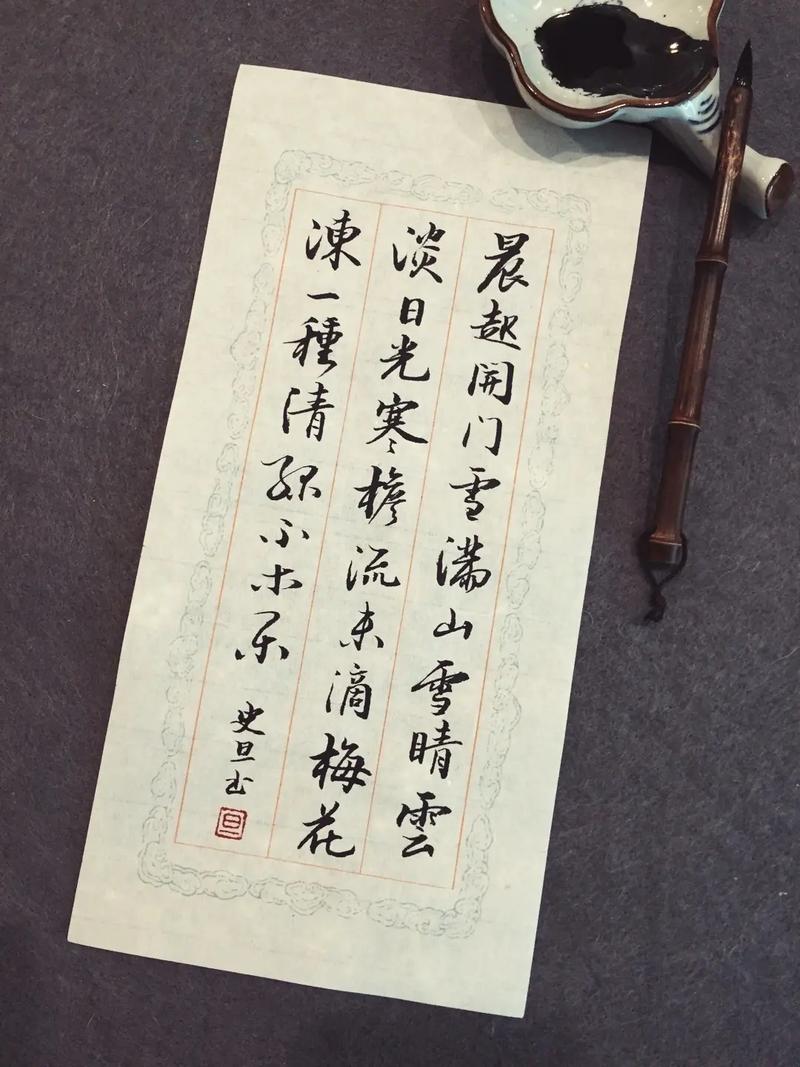 晨起開门雪满山雪晴雲
淡日光寒檐流未滴梅花
凍一種清孤不等闲
史旦书
旦